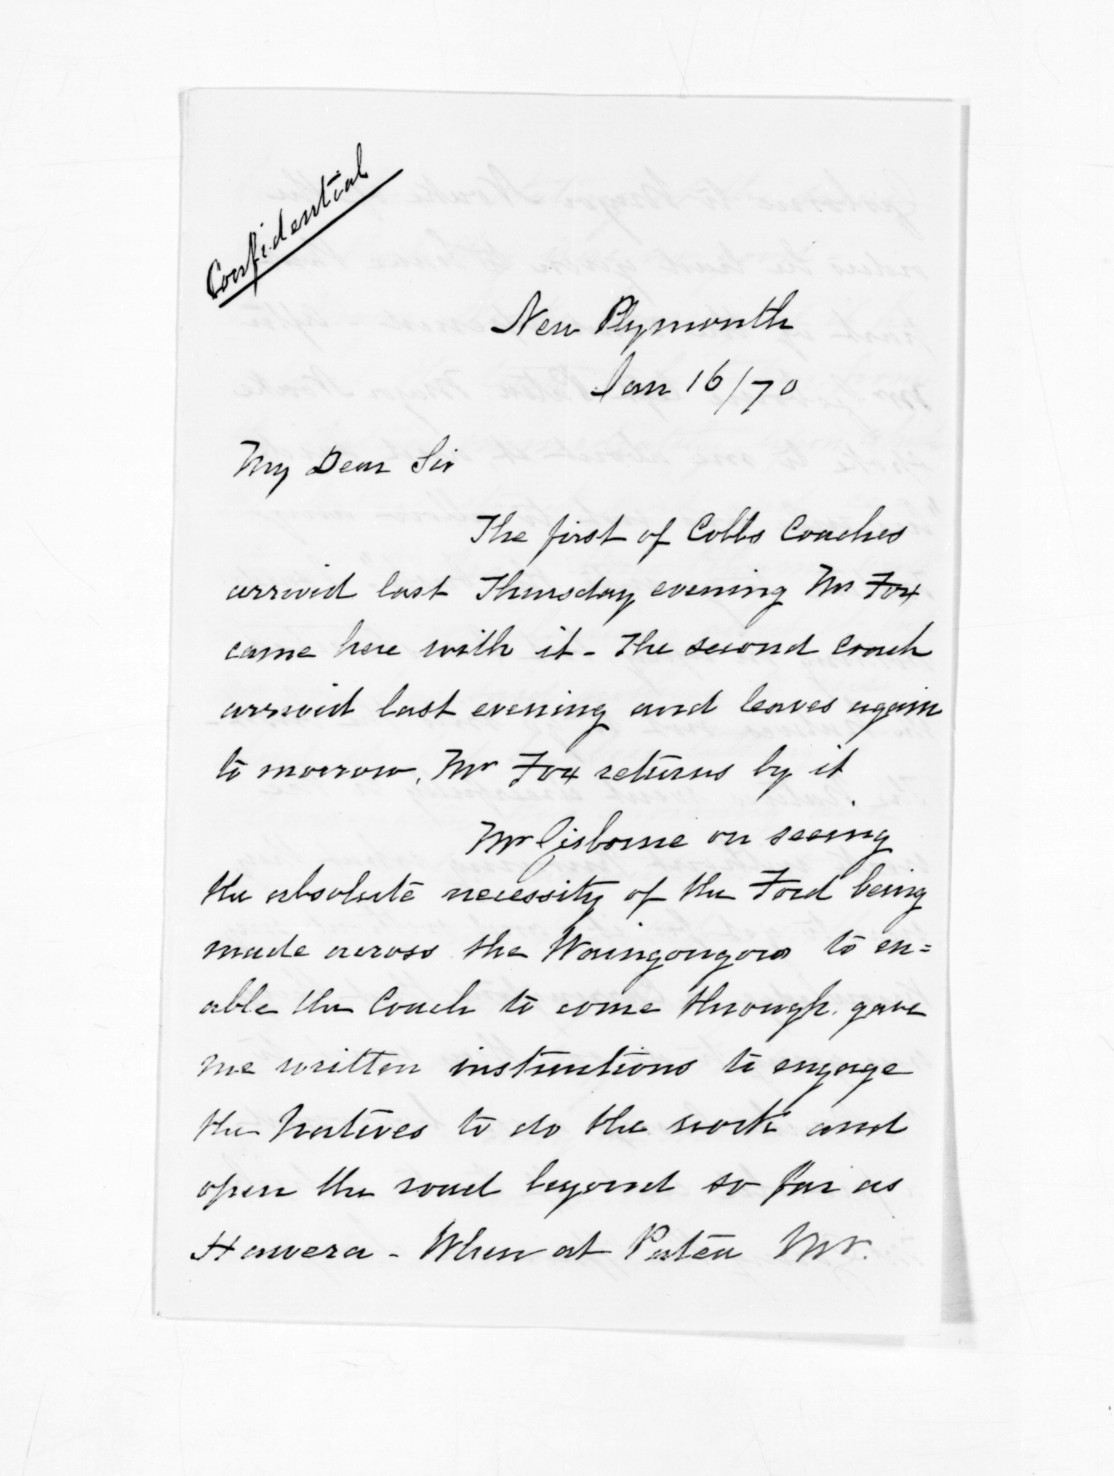 Confidential
New Plymouth
Jan 16/70
My Dear Sir
The first of Cobbs Coaches
arrived last Thursday evening Mr Fox
came here with it - The second Coach
arrived last evening and leaves again
to morrow, Mr Fox returns by it
Mr Gisborne on seeing
the absolute necessity of the Ford being
made across the Waingongoro to en=
able the Coach to come through. gave
me written instructions to engage
the Natives to do the work and
open the road beyond so far as
Hawera - When at Patea Mr.